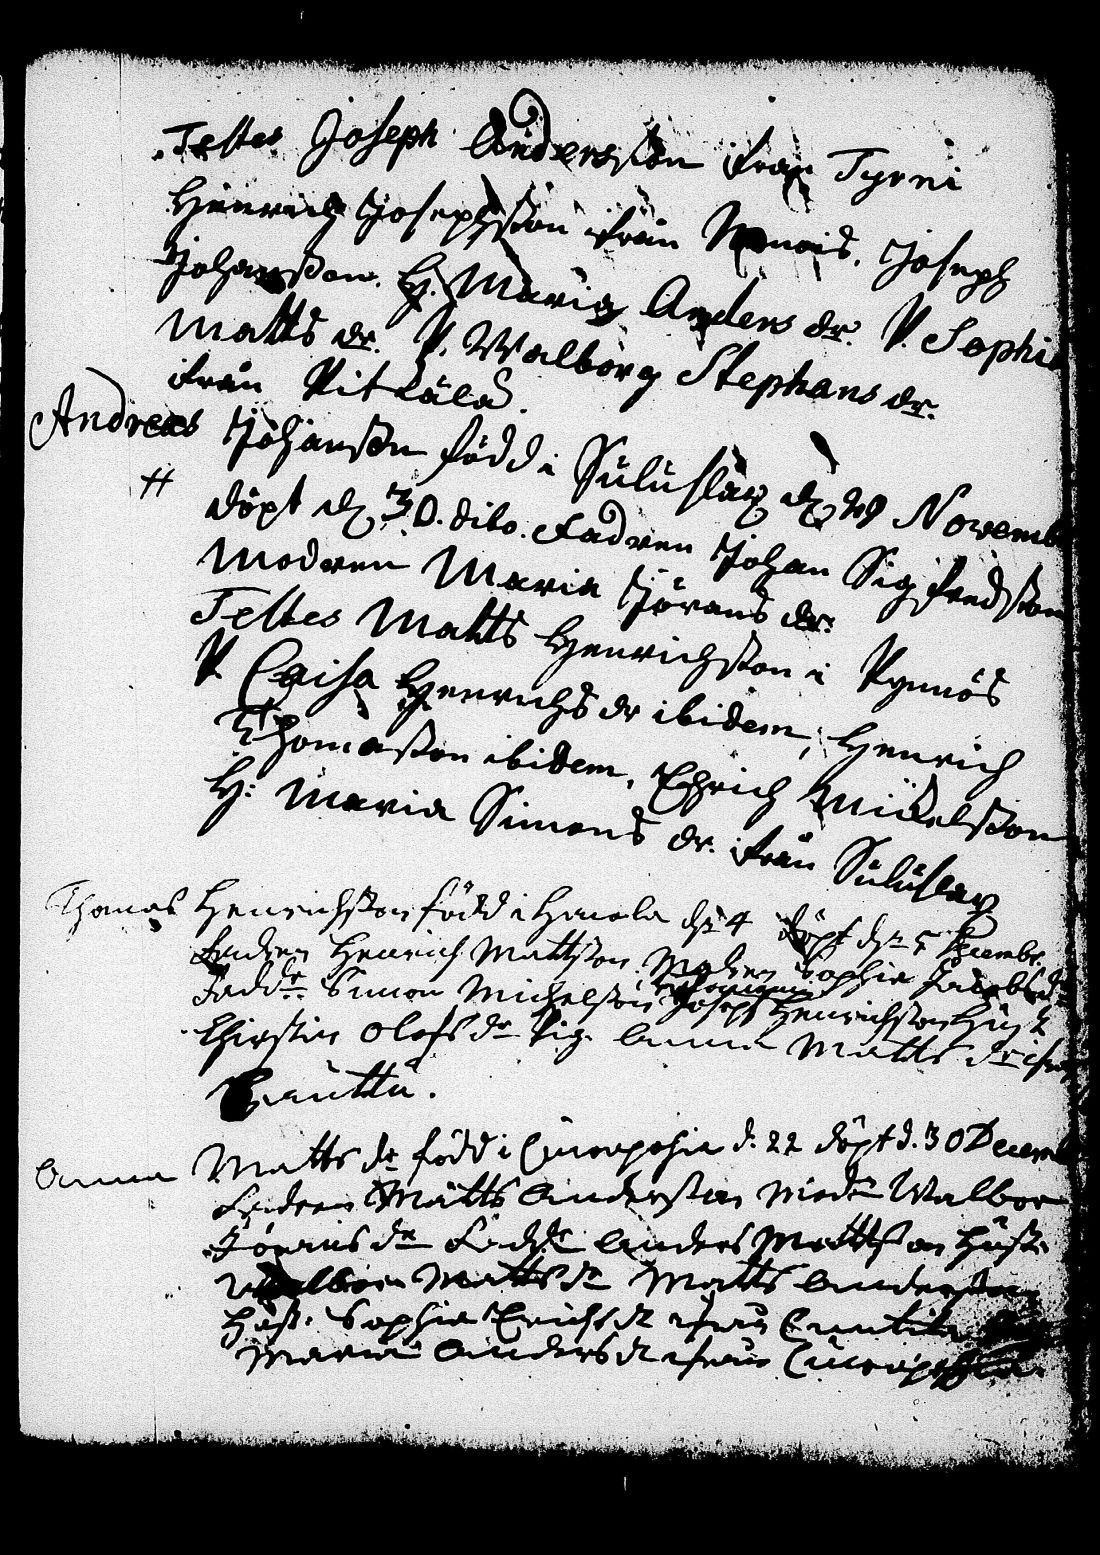 Testes Joseph Andersson från Tyrni
Hinrich Josephsson från Joseph
Johansson. H. Maria Anders dr. P. Sophia
Matts dr. P. Walborg Stephans dr.
från Pitkälä.
Andreas Johansson född i Suluslax d. 29 Novemb
döpt d. 30. dito. Fadren Johan Sigfredsson
Modren Maria Jörans dr.
Testes Matts Henrichsson i Pynnös
P. Caisa Henrichs dr ibidem, Henrich
Thomasson ibidem, Ehrich Mickelsson
H: Maria Simons dr. från Suluslax
Thomas Henrichsson född i d. 4 döpt d. 5 Decembr.
Fadren Henrich Mattsson Modren Sophia Jacobs dr
Fadd. Simon Michelsson Joseph Henrichsson
Christin Olofs dr Pig. Anna Matts dr ifrån
Anna Matts dr född i d. 22 döpt d. 30 Decemb
Fadren Matts Andersson Modr Walbor
Jörans dr Fadd. Anders Mattsson Hust.
Walbor Matts dr Matts Andersson
Hust. Sophia Erichs dr ifrån
Maria Anders dr ifrån